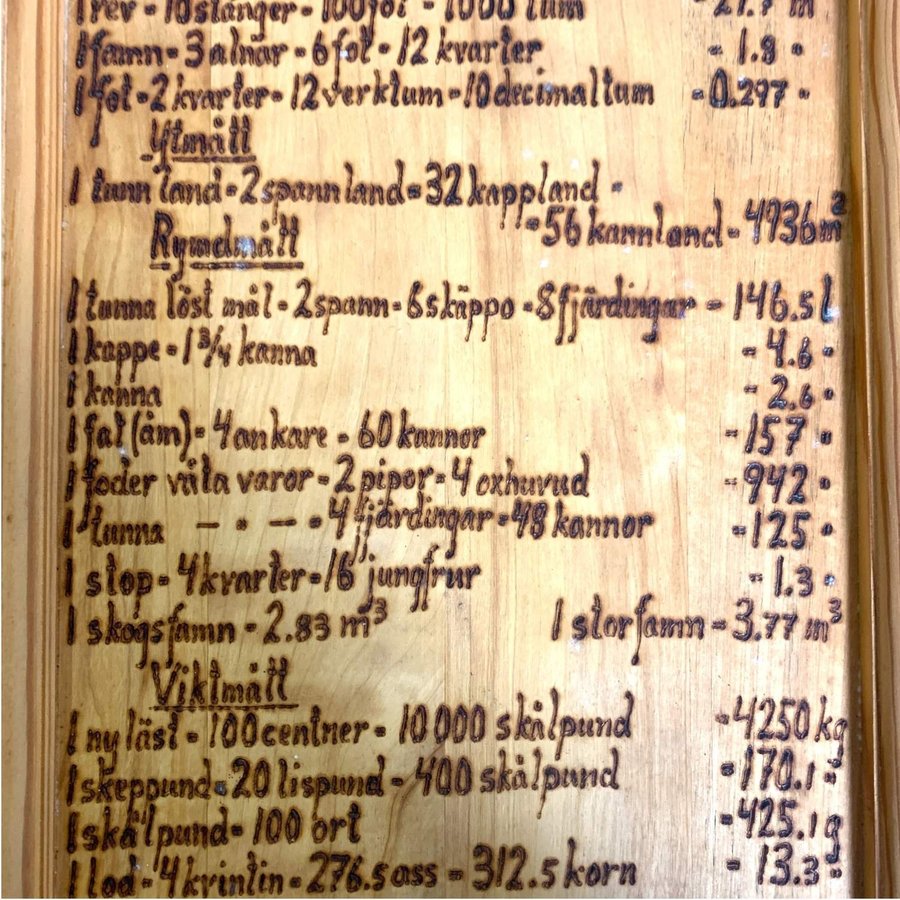 1 rev = 10 stänger = 100 fot = 1000 tum = 29.7 m
1 famn = 3 alnar = 6 fot = 12 kvarter = 1.8 "
1 fot = 2 kvarter = 12 verktum = 10 decimaltum = 0.297 "
Ytmått
1 tunnland = 2 spannland = 32 kappland =
= 56 kannland = 4936 m²
Rymdmått
1 tunna löst mål = 2 spann = 6 skäppo = 8 fjärdingar = 146.5 l
1 kappe = 1 3/4 kanna = 4.6 "
1 kanna = 2.6 "
1 fat (åm) = 4 ankare = 60 kannor = 157 "
1 foder våta varor = 2 pipor = 4 oxhuvud = 942 "
1 tunna — " — = 4 fjärdingar = 48 kannor = 125 "
1 stop = 4 kvarter = 16 jungfrur = 1.3 "
1 skogsfamn = 2.83 m³ 1 storfamn = 3.77 m³
Viktmått
1 ny läst = 100 centner = 10 000 skålpund = 4250 kg
1 skeppund = 20 lispund = 400 skålpund = 170.1 "
1 skålpund = 100 ort = 425.1 g
1 lod = 4 kvintin = 276.5 ass = 312.5 korn = 13.3 "